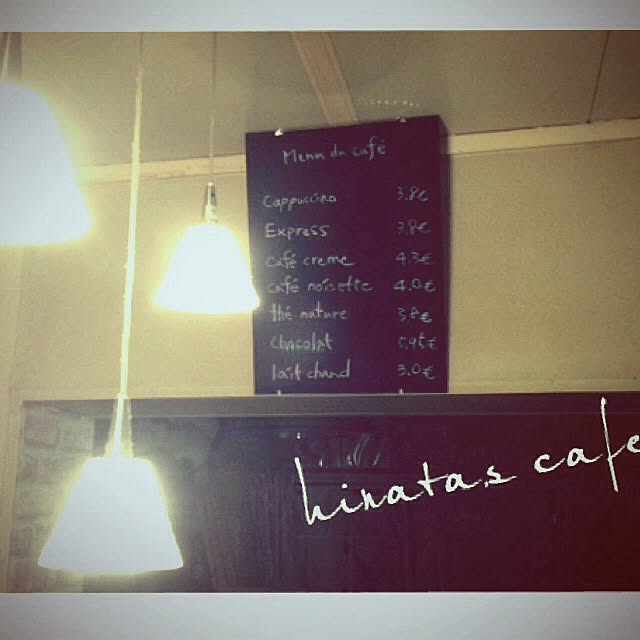 Menu du café
Cappuccino 3.8€
Express 3.8€
café creme 4.3€
café noisette 4.0€
thé nature 3.8€
chocolat
lait chaud 3.0€
hinatas cafe